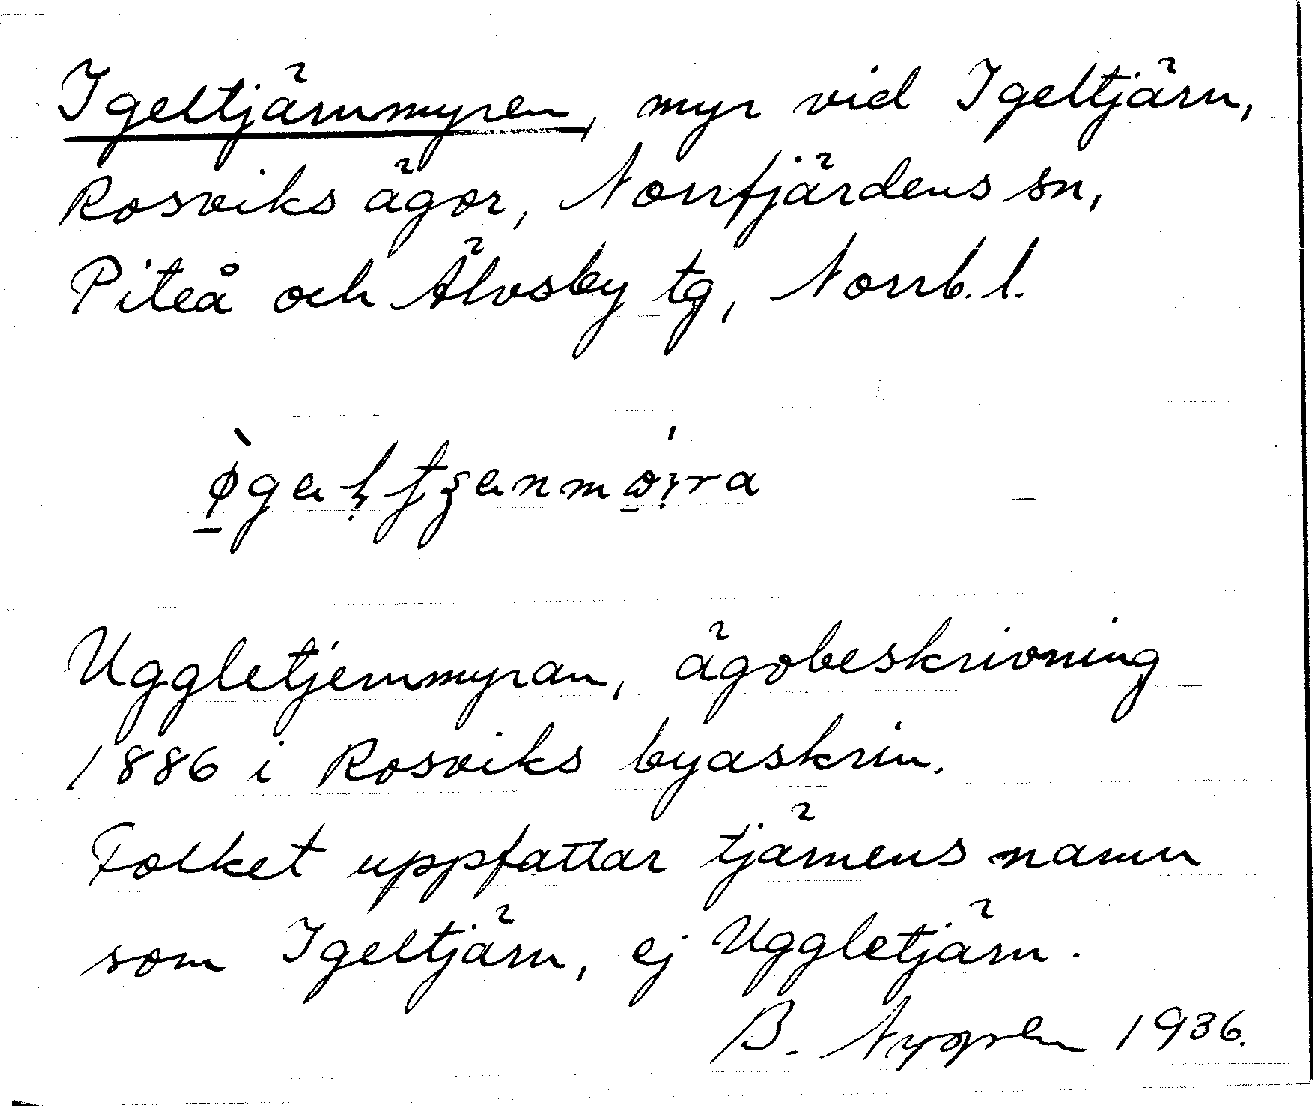 Igeltjärnmyren, myr vid Igeltjärn,
Rosviks ägor, Norrfjärdens sn,
Piteå och Älvsby tg, Norrb. l.
Uggletjernmyran, ägobeskrivning
1886 i Rosviks byaskrin.
Folket uppfattar tjärnens namn
som Igeltjärn, ej Uggletjärn.
B. Nygren 1936.